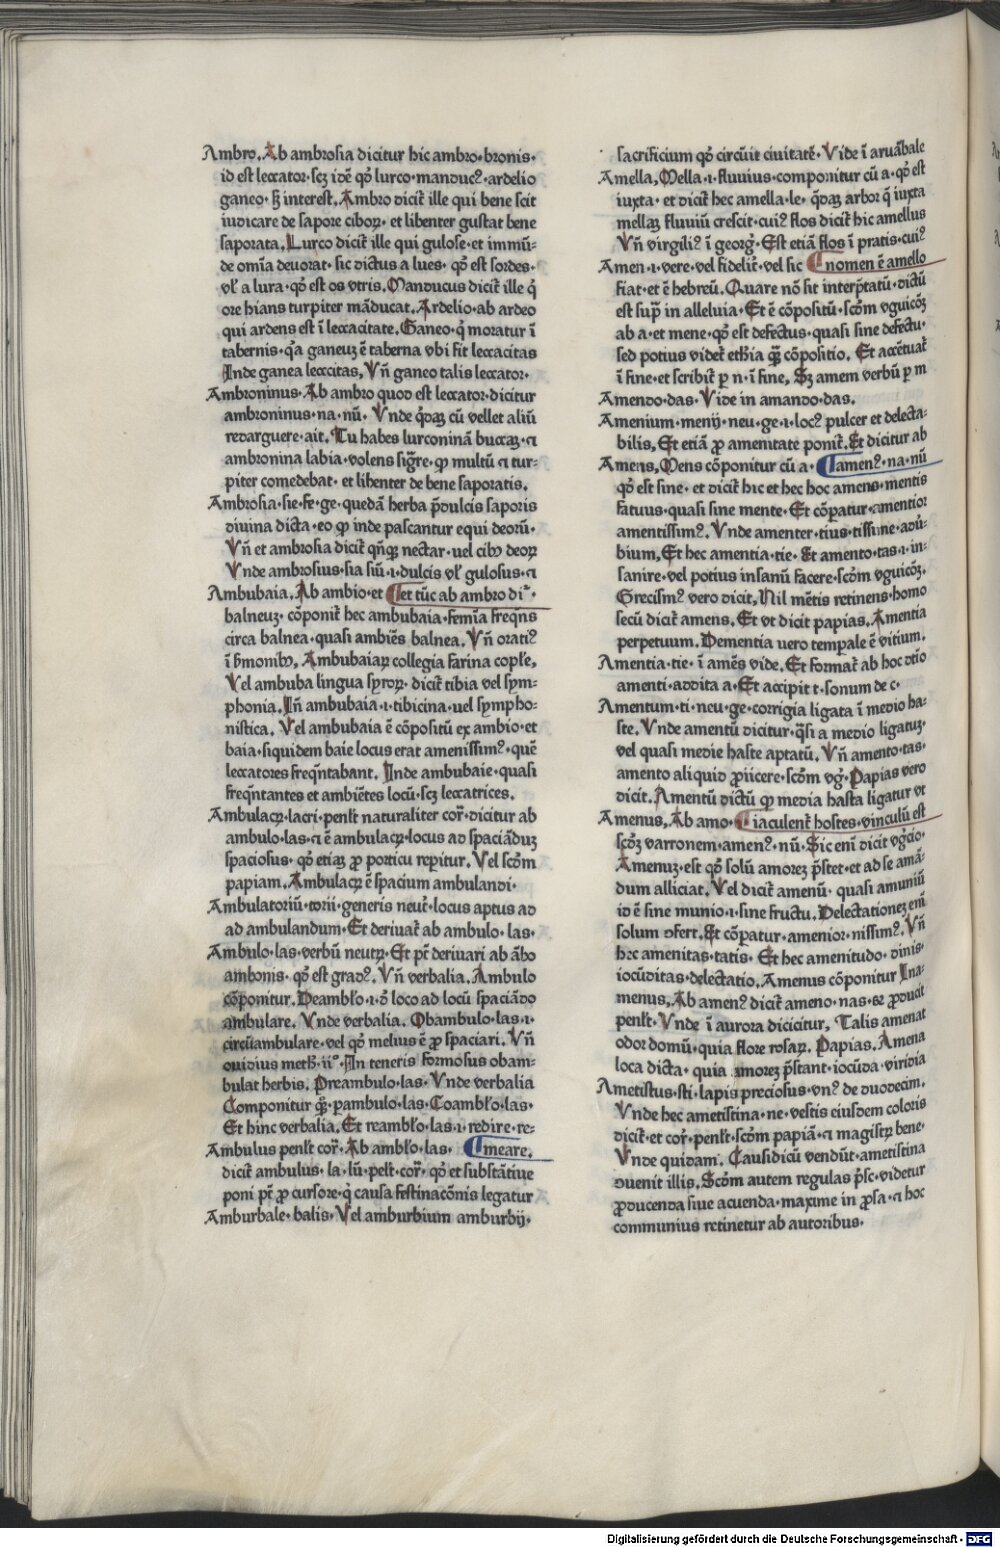 Ambro. Ab ambrosia dicitur hic ambro·bronis·
id est leccator·scꝫ idē qđ lurco·manducꝰ·ardelio
ganeo·sꝫ interest. Ambro dicit̄ ille qui bene scit
iudicare de sapore ciboꝝ·et libenter gustat bene
saporata. Lurco dicit̄ ille qui gulose·et immū-
de om̄ia deuorat·sic dictus a lues·qđ est sordes·
vl̄ a lura·qđ est os vtris. Manducus dicit̄ ille q̇
ore hians turpiter māducat. Ardelio·ab ardeo
qui ardens est ī leccacitate. Ganeo·q̇ moratur ī
tabernis·q̇a ganeuꝫ ē taberna vbi fit leccacitas
Inde ganea leccacitas, Vn̄ ganeo talis leccator·
Ambroninus·Ab ambro quod est leccator·dicitur
ambroninus·na·nū· Vnde q̇daꝫ cū vellet aliū
redarguere·ait. Tu habes lurconinā buccaꝫ·⁊
ambronina labia·volens sig̅re·ꝙ multū ⁊ tur-
piter comedebat·et libenter de bene saporatis.
Ambrosia·sie·fe·ge·quedā herba p̄dulcis saporis
diuina dicta·eo ꝙ inde pascantur equi deoꝝ·
Vn̄ et ambrosia dicit̄ qn̄qꝫ nectar·uel cibꝰ deoꝝ
Vnde ambrosius·sia siū·i·dulcis vl̄ gulosus·⁊
Ambubaia. Ab ambio·et ¶et tūc ab ambro di͛·
balneuꝫ·cōponit̄ hec ambubaia·femīa freqn̄s
circa balnea·quasi ambiēs balnea. Vn̄ oratiꝰ
ī s̄monibꝰ, Ambubaiaꝝ collegia farina copl̄e,
Vel ambuba lingua syroꝝ·dicit̄ tibia vel sym-
phonia. In̄ ambubaia·i·tibicina·uel sympho-
nistica. Vel ambubaia ē cōpositū ex ambio·et
baia·siquidem baie locus erat amenissimꝰ·quē
leccatores freqn̄tabant. Inde ambubaie·quasi
freqn̄tantes et ambiētes locū·scꝫ leccatrices.
Ambulacꝝ·lacri·penl̄t naturaliter cor͛·dicitur ab
ambulo·las·⁊ ē ambulacꝝ·locus ad spaciāduꝫ
spaciosus·qđ etiaꝫ ꝓ porticu repitur. Vel scd̄m
papiam. Ambulacꝝ ē spacium ambulandi·
Ambulatoriū·torii·generis neut͛·locus aptus ad
ad ambulandum·Et deriuat̄ ab ambulo·las·
Ambulo·las·verbū neutꝝ·Et pt̄ deriuari ab ābo
ambonis·qđ est gradꝰ. Vn̄ verbalia. Ambulo
cōponitur. Deambl̄o·i·d̄ loco ad locū spaciādo
ambulare. Vnde verbalia. Obambulo·las·i·
circūambulare·vel qđ melius ē ꝓ spaciari. Vn̄
ouidius meth·iiº·In teneris formosus obam-
bulat herbis. Preambulo·las·Vnde verbalia
Componitur qꝫ·pambulo·las·Coambl̄o·las·
Et hinc verbalia. Et reambl̄o·las·i·redire·re-
Ambulus penl̄t cor͛·Ab ambl̄o·las· ¶meare.
dicit̄ ambulus·la·lū·pel̄t·cor͛·qđ et substātiue
poni pt̄ ꝓ cursore·q̇ causa festinacōnis legatur
Amburbale·balis·Vel amburbium amburbij·
sacrificium qđ circūit ciuitatē·Vide ī aruābale
Amella, Mella·i·fluuius·componitur cū a·qđ est
iuxta·et dicit̄ hec amella·le·q̇daꝫ arbor q̇ iuxta
mellaꝫ fluuiū crescit·cuiꝰ flos dicit̄ hic amellus
Vn̄ virgiliꝰ ī georg̅·Est etiā flos ī pratis·cuiꝰ
Amen·i·vere·vel fidelit̄·vel sic ¶nomen ē amello
fiat·et ē hebreū. Quare nō sit interp̄tatū·dictū
est sup̄ in alleluia·Et ē cōpositū·scd̄m vguicōꝫ
ab a·et mene·qđ est defectus·quasi sine defectu·
sed potius videt̄ ethīa qꝫ cōpositio. Et accētuat̄
ī fine·et scribit̄ p n·ī fine, Sꝫ amem verbū p m
Amendo·das·Vide in amando·das.
Amenium·menij·neu·ge·i·locꝰ pulcer et delecta-
bilis, Et etiā ꝓ amenitate ponit̄. Et dicitur ab
Amens, Mens cōponitur cū a· ¶amenꝰ·na·nū
qđ est sine·et dicit̄ hic et hec hoc amens·mentis
fatuus·quasi sine mente·Et cōparatur·amentior
amentissimꝰ. Vnde amenter·tius·tissime·adū-
bium, Et hec amentia·tie·Et amento·tas·i·in-
sanire·vel potius insanū facere·scd̄m vguicōꝫ.
Grecismꝰ vero dicit, Nil mētis retinens·homo
secū dicit̄ amens. Et vt dicit papias. Amentia
perpetuum. Dementia uero temꝑale ē vitium.
Amentia·tie·ī amēs vide. Et format̄ ab hoc dtīo
amenti·addita a·Et accipit t·sonum de c·
Amentum·ti·neu·ge·corrigia ligata ī medio ha-
ste. Vnde amentū dicitur·q̄si a medio ligatuꝫ·
vel quasi medie haste aptatū. Vn̄ amento·tas·
amento aliquid ꝓiicere·scd̄m vg̅·Papias vero
dicit. Amentū dictū ꝙ media hasta ligatur vt
Amenus, Ab amo· ¶iaculent̄ hostes·vinculū est
scd̄ꝫ varronem·amenꝰ·nū·Sic eni̅ dicit vg̅cio·
Amenuꝫ·est qđ solū amoreꝫ p̄stet·et ad se amā-
dum alliciat. Vel dicit̄ amenū·quasi amuniū
id ē sine munio·i·sine fructu. Delectationeꝫ eni̅
solum ꝯfert. Et cōparatur·amenior·nissimꝰ. Vn̄
hec amenitas·tatis·Et hec amenitudo·dinis·
iocūditas·delectatio. Amenus cōponitur Ina-
menus, Ab amenꝰ dicit̄ ameno·nas·⁊ ꝓducit
penl̄t·Vnde ī aurora dicicitur, Talis amenat
odor domū·quia flore rosaꝝ. Papias. Amena
loca dicta·quia amoreꝫ p̄stant·iocūda·viridia
Ametistus·sti·lapis preciosus·vnꝰ de duodecim.
Vnde hec ametistina·ne·vestis eiusdem coloris
dicit̄·et cor͛·penl̄t·scd̄m papiā·⁊ magistꝝ bene·
Vnde quidam. Causidicū vendūt·ametistina
duenit illis. Scd̄m autem regulas p̄sc·videtur
ꝓducenda siue acuenda·maxime in ꝓsa·⁊ hoc
communius retinetur ab autoribus·
Digitalisierung gefördert durch die Deutsche Forschungsgemeinschaft - DFG